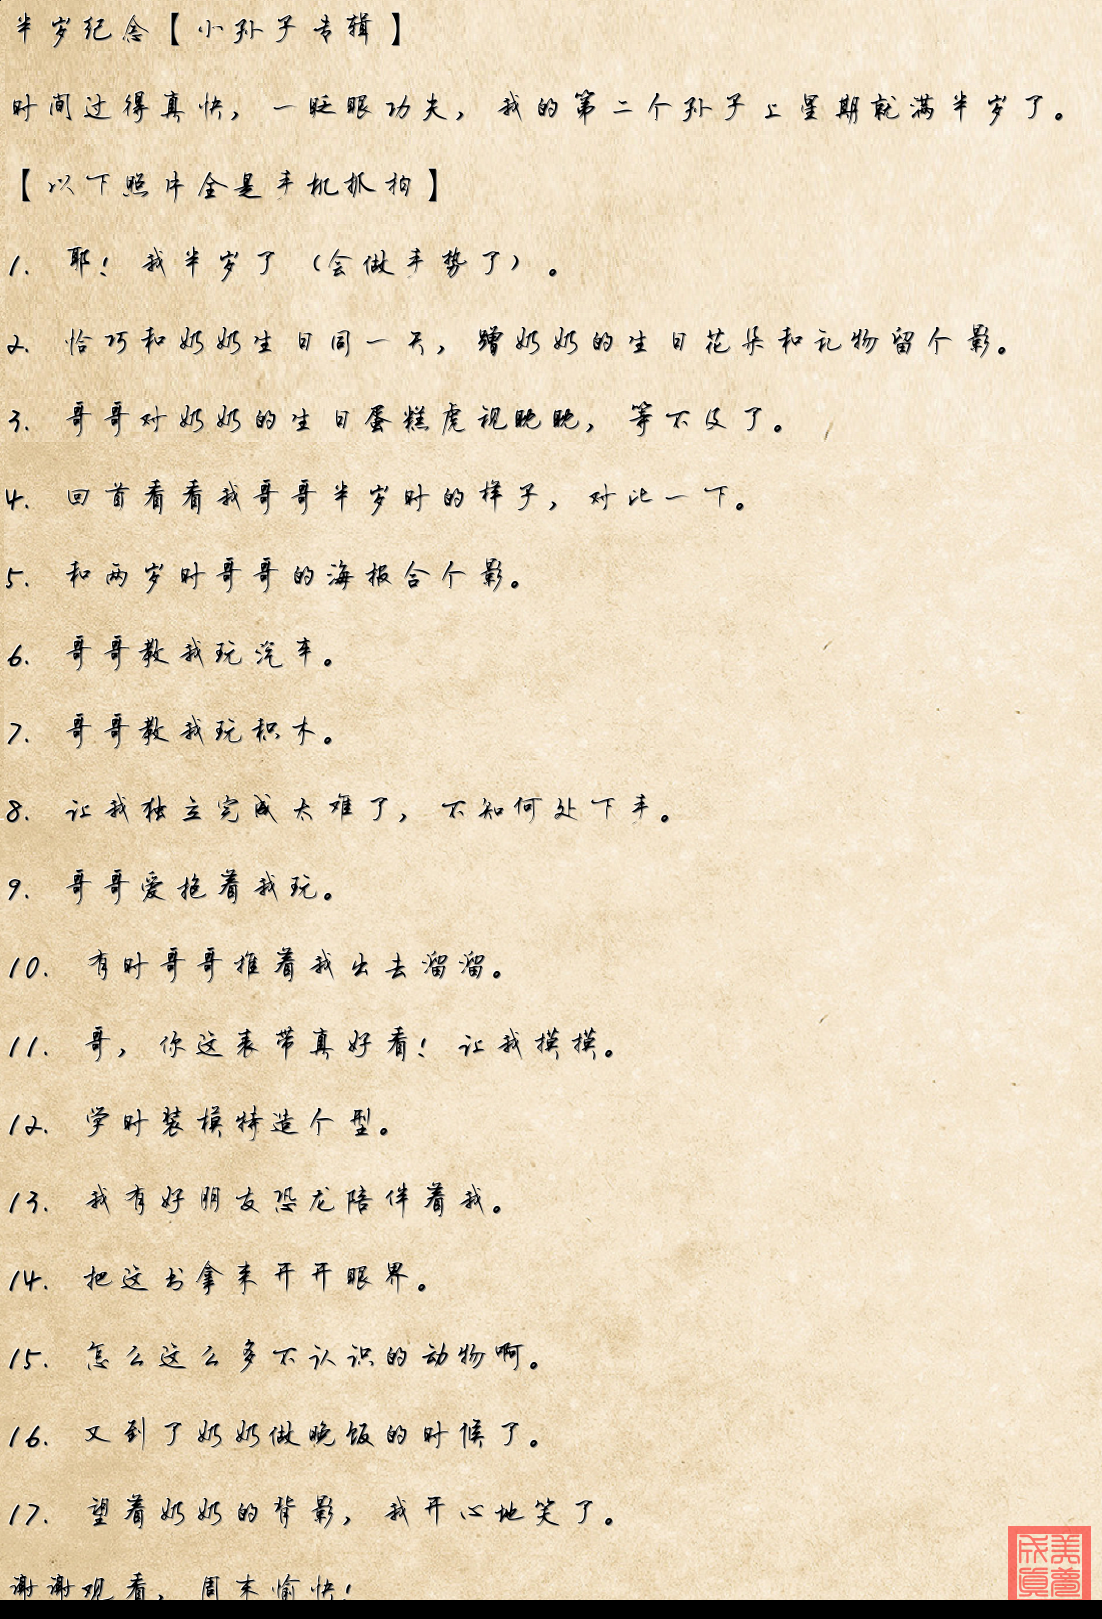 半岁纪念【小孙子专辑】
时间过得真快，一眨眼功夫，我的第二个孙子上星期就满半岁了。
【以下照片全是手机抓拍】
1. 耶！我半岁了（会做手势了）。
2. 恰巧和奶奶生日同一天，蹭奶奶的生日花朵和礼物留个影。
3. 哥哥对奶奶的生日蛋糕虎视眈眈，等不及了。
4. 回首看看我哥哥半岁时的样子，对比一下。
5. 和两岁时哥哥的海报合个影。
6. 哥哥教我玩汽车。
7. 哥哥教我玩积木。
8. 让我独立完成太难了，不知何处下手。
9. 哥哥爱抱着我玩。
10. 有时哥哥推着我出去溜溜。
11. 哥，你这表带真好看！让我摸摸。
12. 学时装模特造个型。
13. 我有好朋友恐龙陪伴着我。
14. 把这书拿来开开眼界。
15. 怎么这么多不认识的动物啊。
16. 又到了奶奶做晚饭的时候了。
17. 望着奶奶的背影，我开心地笑了。
谢谢观看，周末愉快！
美梦成真